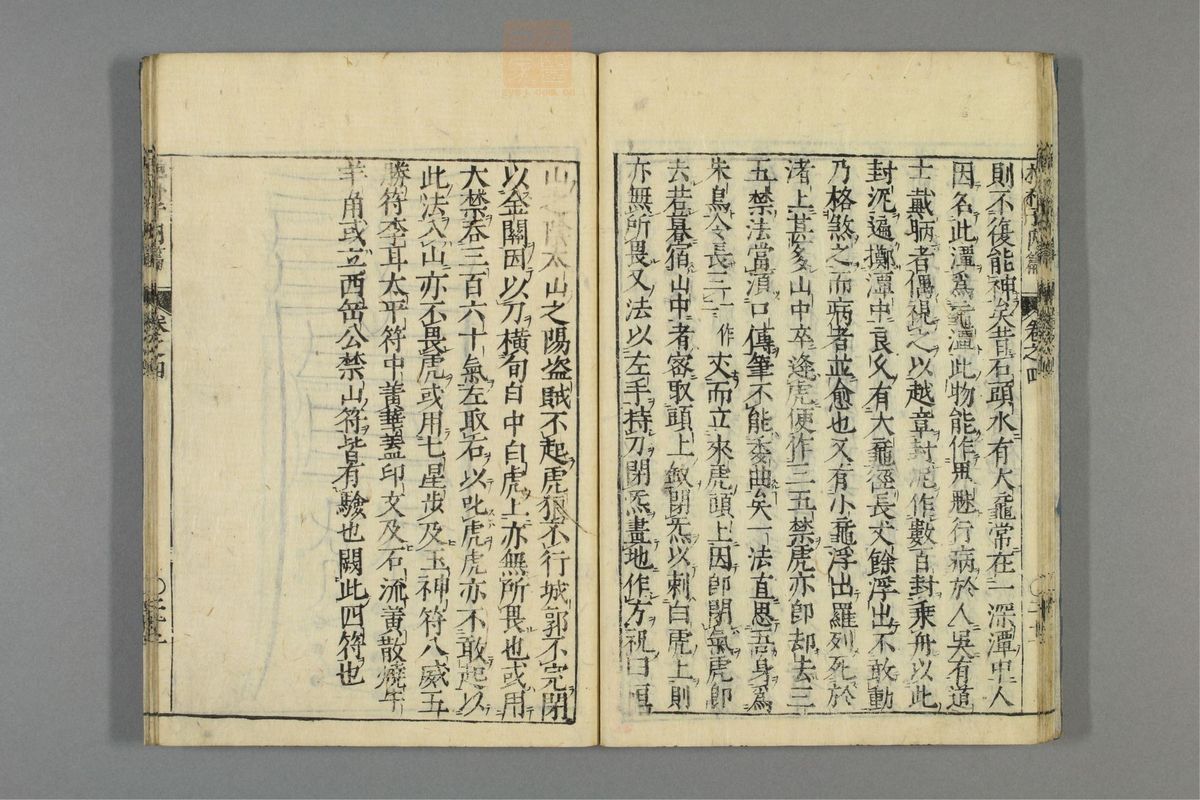 則不復能神矣昔石頭水有大黿常在一深潭中人
因名此潭爲黿潭此物能作鬼魅行病於人吳有道
士戴昞者偶視之以越章封泥作數百封乘舟以此
封泥遍擲潭中良久有大黿徑長丈餘浮出不敢動
乃格煞之而病者並愈也又有小黿浮出羅列死於
渚上甚多山中卒逢虎便作三五禁虎亦卽却去三
五禁法當須口傳筆不能委曲矣一法直思吾身爲
朱鳥令長三一作丈而立來虎頭上因卽閉氣虎卽
去若暮宿山中者密取頭上釵閉炁以刺白虎上則
亦無所畏又法以左手持刀閉炁畫地作方祝曰恒
山之陰太山之陽盗賊不起虎狼不行城郭不完閉
以金關因以刀橫旬日中白虎上亦無所畏也或用
大禁吞三百六十氣左取右以叱虎虎亦不敢起以
此法入山亦不畏虎或用七星步及玉神符八威五
勝符李耳太平符中黃華蓋印文及石流黃散燒牛
羊角或立西岳公禁山符皆有驗也闕此四符也
卷之四
卷之四